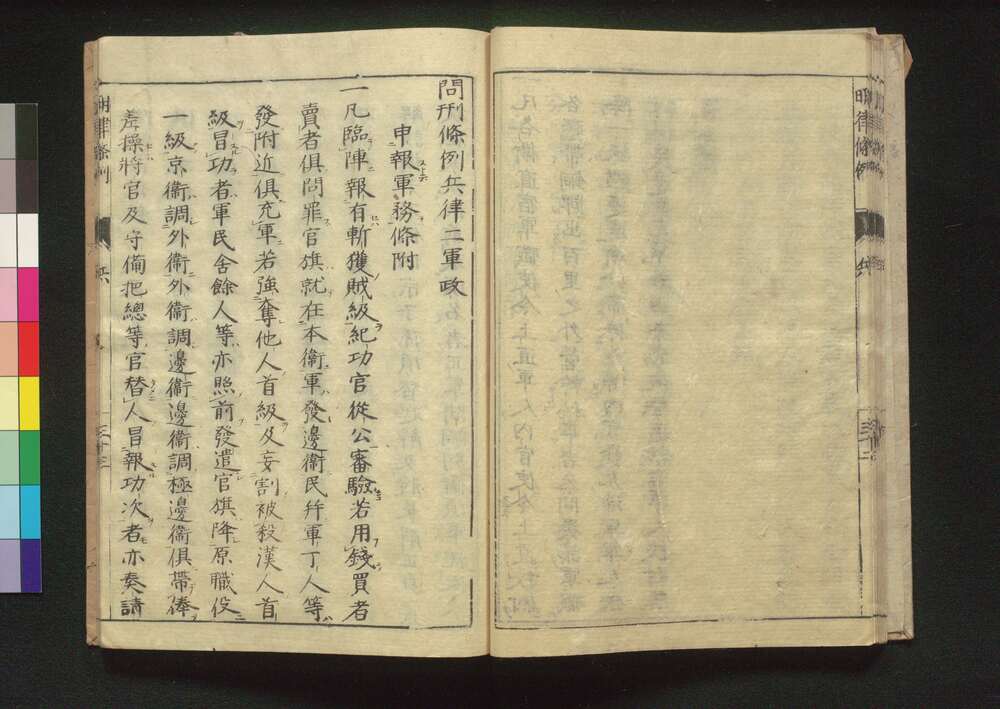 問刑條例兵律二軍政
申報軍務條附
一凡臨陣報有斬獲賊級紀功官從公審驗若用錢買者
賣者俱問罪官旗就在本衞軍發邊衞民幷軍丁人等
發附近俱充軍若強奪他人首級及妄割被殺漢人首
級冒功者軍民舍餘人等亦照前發遣官旗降原職役
一級京衞調外衞外衞調邊衞邊衞調極邊衞俱帶俸
差操將官及守備把總等官替人冒報功次者亦奏請
明律條例
兵
三十三
明律條例
兵
三十二